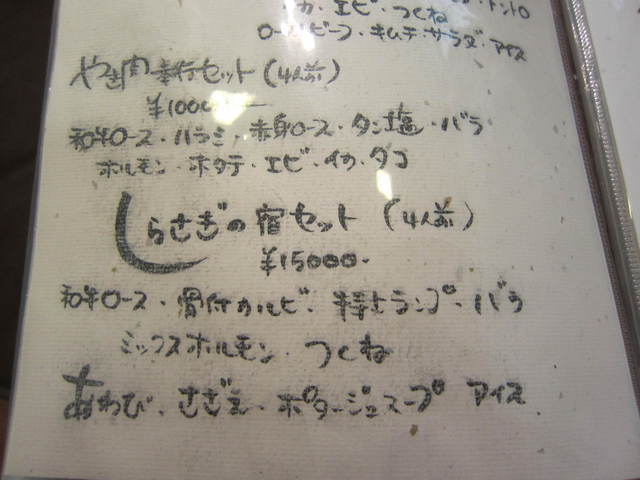 イカ・エビ・つくね
ローストビーフ・キムチ・サラダ・アイス
セット (4人前)
和牛ロース・ハラミ・赤身ロース・タン塩・バラ
ホルモン・ホタテ・エビ・イカ・タコ
しらさぎの宿セット (4人前)
¥15000-
和牛ロース・骨付カルビ・特上ランプ・バラ
ミックスホルモン・つくね
あわび・さざえ・ポタージュスープ アイス